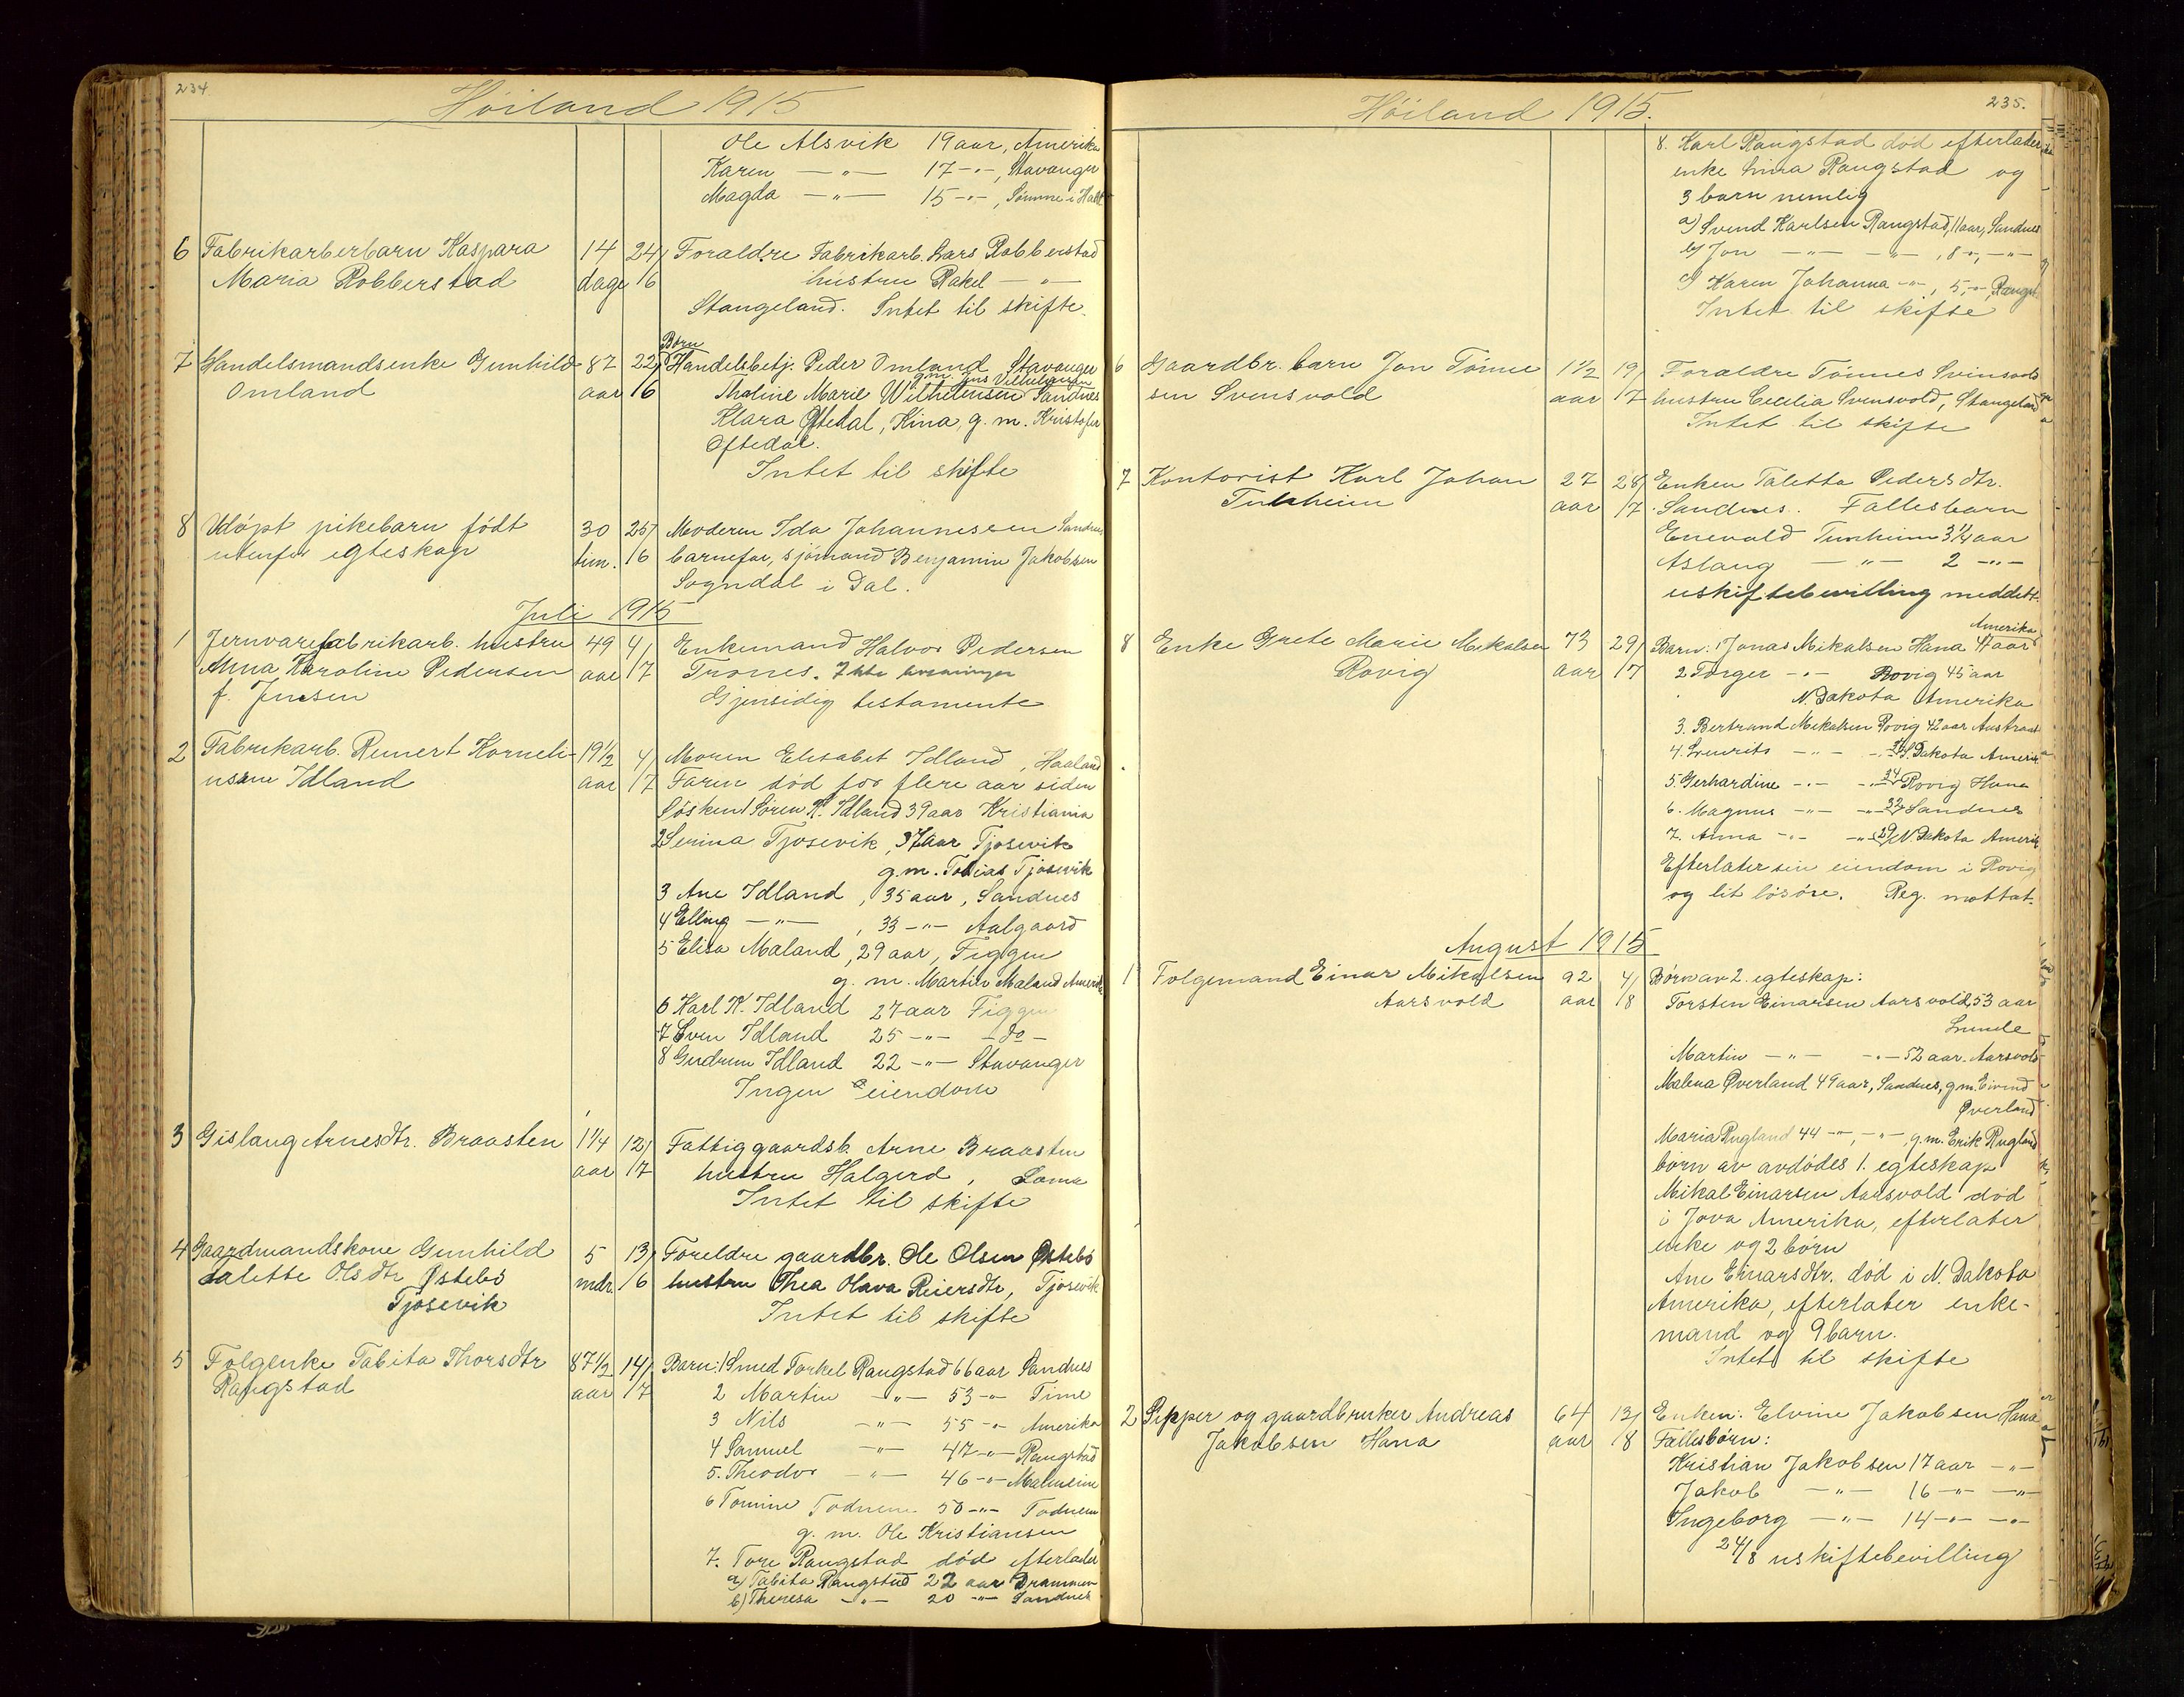 234
Höiland 1915
Ole Alsvik 19 aar, Amerika
Karen —„— 17 -„-, Stavanger
Magda —„— 15 -„-, Sömme i
6 Fabrikarberbarn Kaspara 14 24/ Foraldre Fabrikarb. Lars Robberstad
Maria Robberstad dage 16 hustru Rakel —„—
Stangeland. Intet til skifte.
Børn
7 Handelsmandsenke Gunhild 87 22/ Handelsbetj. Peder Omland Stavanger
g.m. Jens Vilhelmsen
Omland aar 16 Thaline Marie Wilhelmsen Sandnes
Klara Oftedal, Kina, g. m. Kristofer
Oftedal.
Intet til skifte
8 Udöpt pikebarn födt 30 25/ Moderen Ida Johannesen Sandnes
utenfor egteskap tim. 16 barnefar, sjömand Benjamin Jakobsen
Sogndal i Dal.
Juli 1915
1 Jernvarefabrikarb. hustru 49 4/ Enkemand Halvor Pedersen
Anna Karoline Pedersen aar 17 Trones. Ikke
f. Jensen Gjensidig testamente
2 Fabrikarb. Reinert Korneli- 19 1/2 4/ Moren Elisabet Idland, Haaland
usen Idland aar 17 Faren död for flere aar siden
Søsken 1 Søren K. Idland 39 aar Kristiania
2 Serina Tjosevik, 37 aar Tjosevik
g.m. Tobias Tjosevik
3 Ane Idland, 35 aar, Sandnes
4 Elling —„—, 33 -„- Aalgaard
5 Elisa Maland, 29 aar, Figgen
g. m. Martin Maland Amerika
6 Karl K. Idland 27 aar Figgen
7 Sven Idland 25 -„- - do -
8 Gudrun Idland 22 -„- Stavanger
Ingen eiendom
3 Gislaug Arnesdtr. Braasten 1 1/4 12/ Fattiggaardsb. Arne Braasten
aar 17 hustru Halgerd, Soma
Intet til skifte
4 Gaardmandskone Gunhild 5 13/ Foreldre gaardbr. Ole Olsen Østebö
Talette Olsdtr Østebö mdr. 16 hustru Thea Olava Reiersdtr, Tjosevik
Tjosevik Intet til skifte
5 Folgenke Tabita Thorsdtr 87 1/2 14/ Barn: 1 Smed Torkel Rangstad 66 aar Sandnes
Rangstad aar 17 2 Martin -„- 53 -„- Time
3 Nils -„- 55 -„- Amerika
4 Samuel -„- 47 -„- Rangstad
5. Theodor -„- 46 -„- Malmeim
6 Tomine Todnem 50 -„- Todnem
g. m. Ole Kristiansen
7. Tore Rangstad död efterlader
a) Tabita Rangstad 22 aar Drammen
b) Theresa -„- 20 -„- Sandnes
235.
Höiland 1915.
8. Karl Rangstad död efterlader
enke Lina Rangstad og
3 barn nemlig
a) Svend Karlsen Rangstad, 11 aar, Sandnes
b) Jon -„- -„-, 8 -„-, -„-
c) Karen Johanna -„-, 5 -„-, Rangst
Intet til skifte
6 Gaardbr. barn Jon Tönne 1 1/2 19/ Foraldre Tönnes Svinsvold
sen Svensvold aar 17 hustru Cecelia Svensvold, Stangeland
Intet til skifte
7 Kontorist Karl Johan 27 28/ Enken Taletta Pedersdtr.
Tunheim aar 17 Sandnes. Fallesbarn
Enevald Tunheim 3 1/4 aar
Aslaug —„— 2 -„-
uskiftebevilling meddelt.
Amerika
8 Enke Grete Marie Mikalsen 73 29/ Barn: 1 Jonas Mikalsen Hana aar
Rovig aar 17 2 Torger -„- Rovig 45 aar
N. Dakota Amerika
3. Bertrand Mikalsen Rovig 42 aar Austral
4. Lauritz -„- -„- Dakota Amerik
5. Gerhardine -„- -„- 34 Rovig Hana
6. Magnus -„- -„- 32 Sandnes
7. Anna -„- -„- 29 N. Dakota Amerik
Efterlater sin eiendom i Rovig
og lit lösöre. Reg. mottat.
August 1915
1 Folgemand Einar Mikalsen 92 4/ Børn av 2. egteskap:
Aarsvold aar 18 Torsten Einarsen Aarsvold, 53 aar
Lunde
Martin -„- -„- 52 aar. Aarsvold
Malena Øverland 49 aar, Sandnes, g.m. Eivind
Øverland
Maria Rugland 44 -„-, -„-, g.m. Erik Rugland
börn av avdödes 1. egteskap
Mikal Einarsen Aarsvold död
i Jova Amerika, efterlater
enke og 2 börn
Ane Einarsdtr. död i N. Dakota
Amerika, efterlater enke-
mand og 9 barn.
Intet til skifte
2 Skipper og gaardbruker Andreas 64 13/ Enken: Elvine Jakobsen Hana
Jakobsen Hana aar 18 Fællesbörn:
Kristian Jakobsen 17 aar -„-
Jakob -„- 16 -„- -„-
Ingeborg -„- 14 -„- -„-
24/8 uskiftebevilling